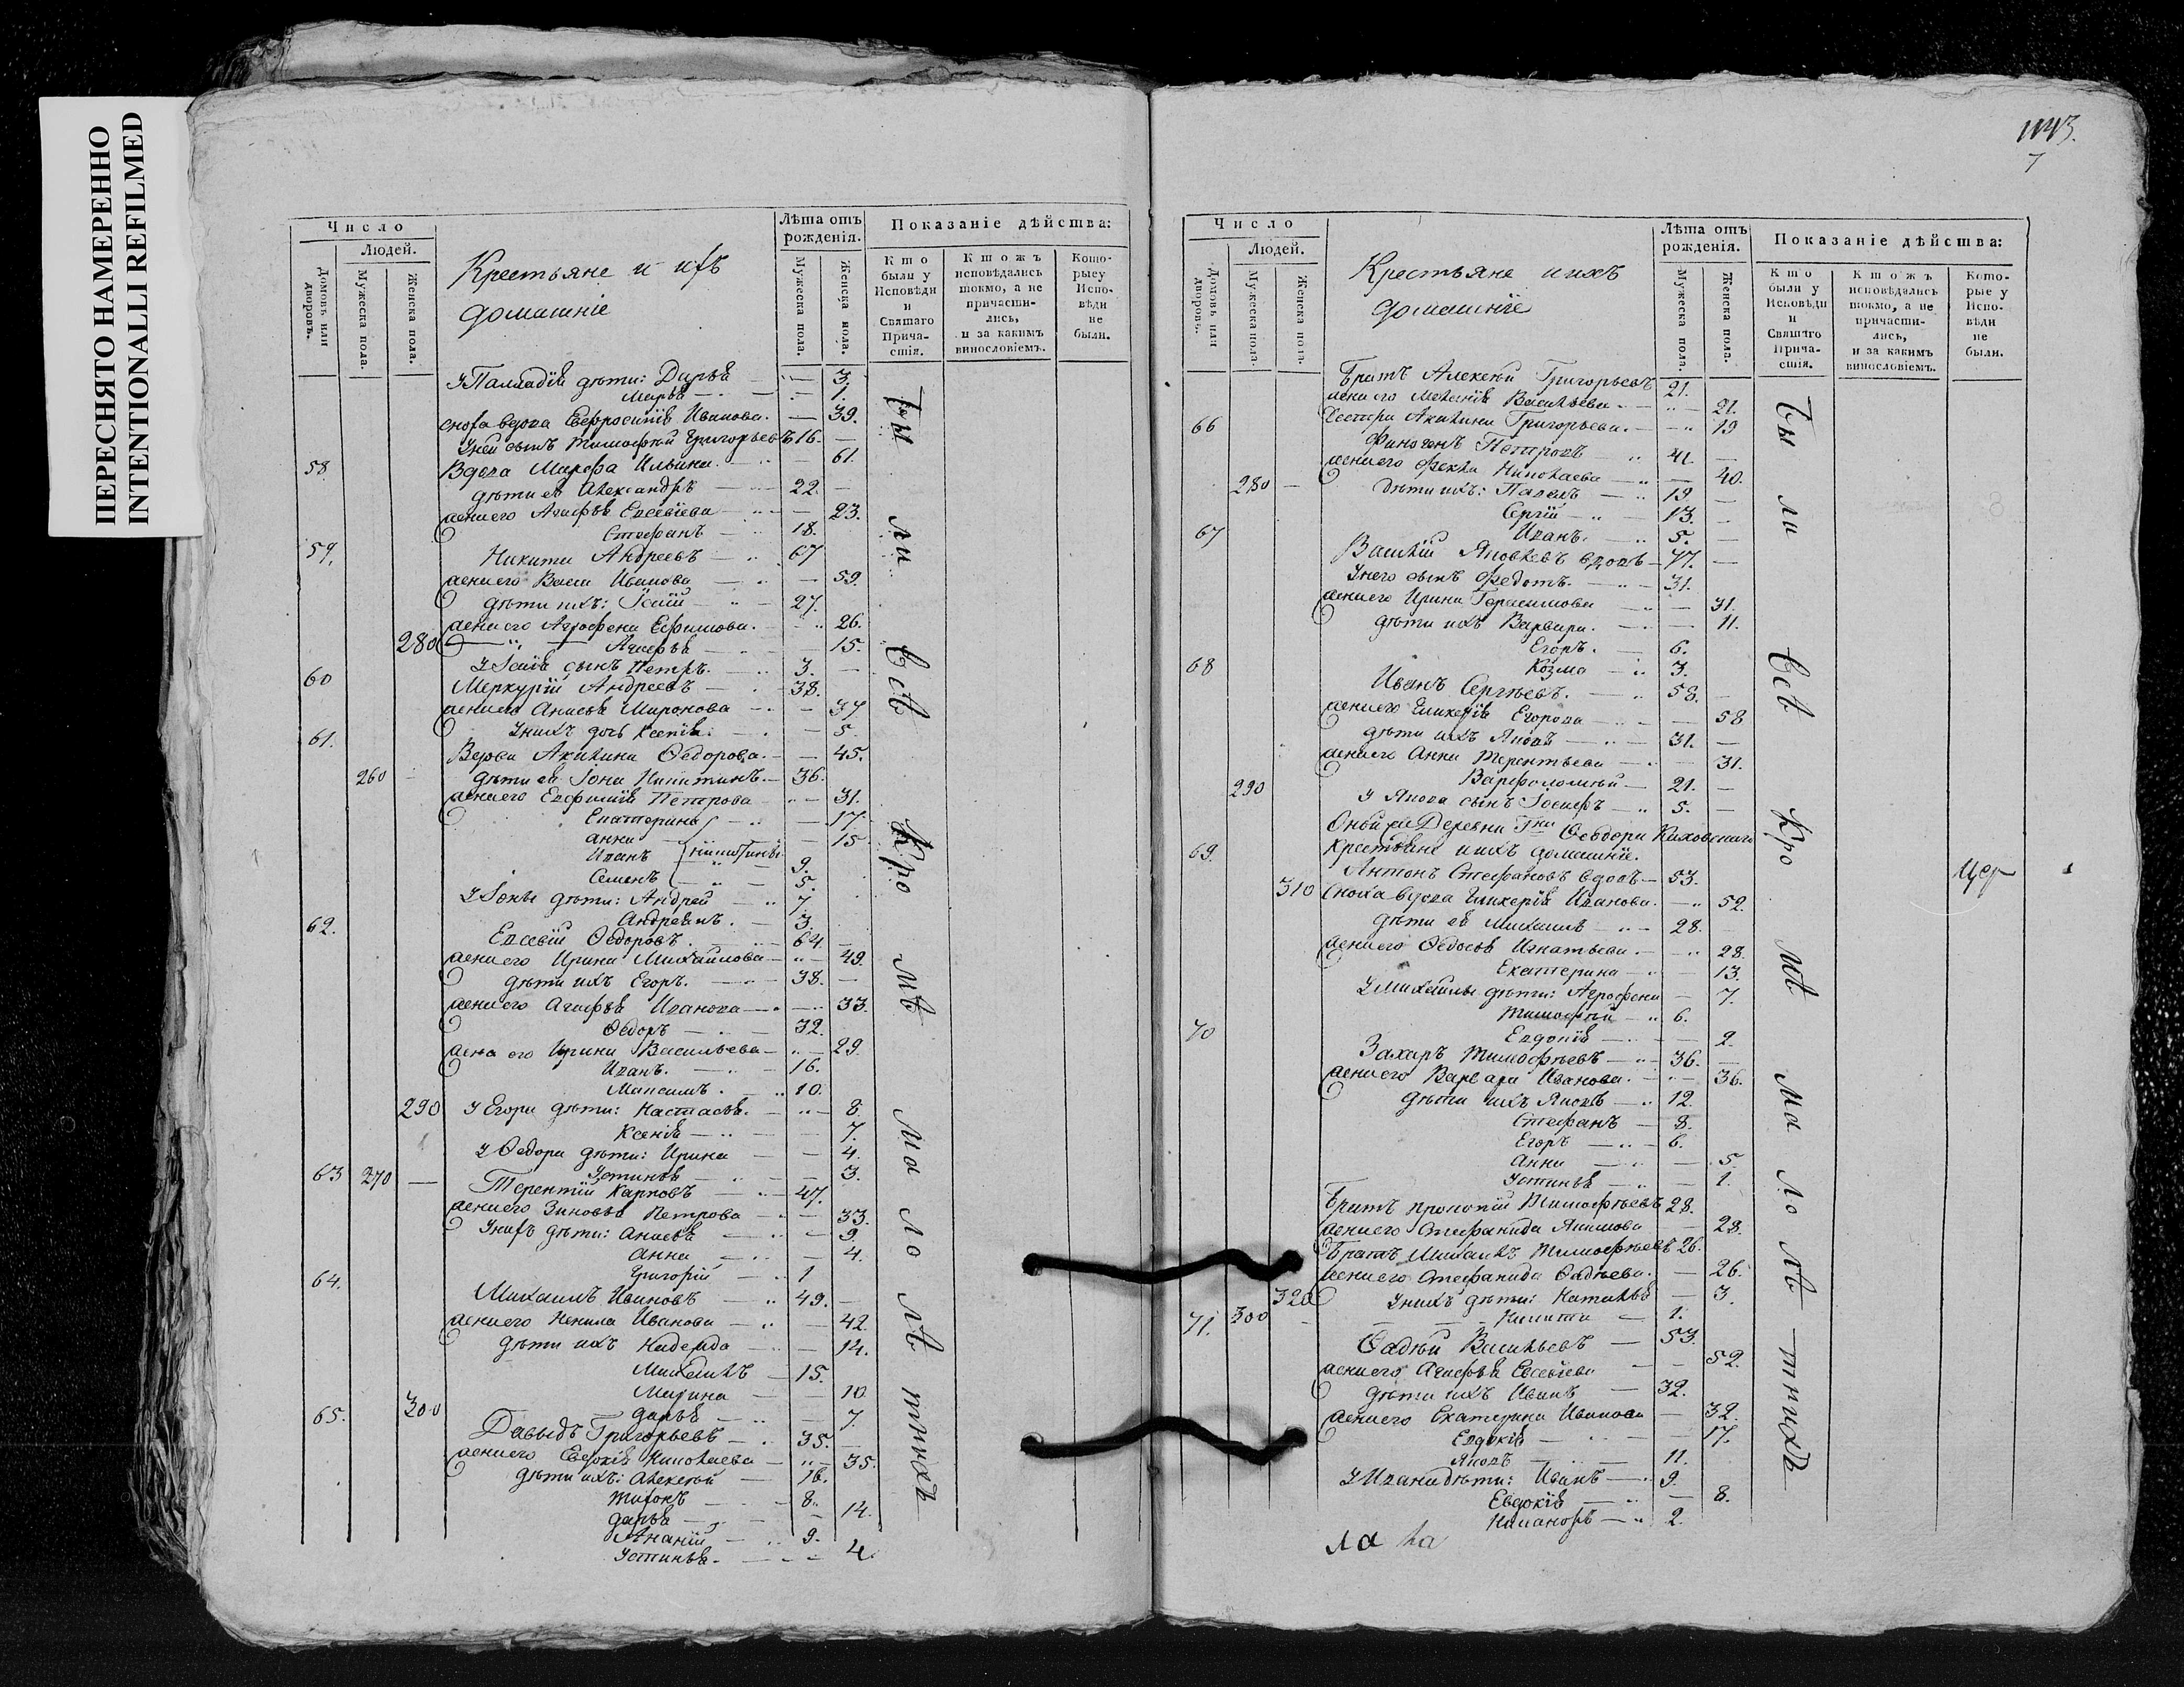 ПЕРЕСНЯТО НАМЕРЕННО
INTENTIONALLI REFILMED
Число
Людей.
Домовъ или дворовъ.
Мужеска пола.
Женска пола.
Крестьяне и ихъ
домашніе
Лѣта отъ рожденія.
Мужеска пола.
Женска пола.
Показаніе дѣйства:
Кто были у Исповѣди и Святаго Причастія.
Ктожъ исповѣдались токмо, а не причастились, и за какимъ винословіемъ.
Которые у Исповѣди не были.
У Палладія дѣти: Дарья — 3.
Марья — 1.
сноха вдова Евфросинія Иванова. — 39.
У ней сынъ Тимофей Григорьевъ 16. —
58. Вдова Марфа Ильина — 61.
дѣти ея Александръ — 22. —
жена его Агафья Евсевіева — 23.
Стефанъ — 18.
59. Никита Андреевъ — 67
жена его Васса Иванова — 59.
дѣти ихъ: Исаія — 27.
жена его Агрофена Ефимова. — 26.
280 Агафья — 15.
У Исаія сынъ Петръ. 3. —
60 Меркурій Андреевъ — 38.
жена его Анисья Миронова — 37
У нихъ дочь Ксенія. — 5.
61. Вдова Акилина Ѳедорова. — 45.
260 — дѣти ея Іона Никитинъ. — 36.
жена его Евфимія Петрова — 31.
Екатерина — 17.
Анна — 15
Иванъ Никитины 9.
Семенъ — 5.
У Іоны дѣти: Андрей — 7.
Андреянъ. — 3.
62. Евсевій Ѳедоровъ. — 64. —
жена его Ирина Михайлова — 49.
дѣти ихъ Егоръ. — 38. —
жена его Агафья Иванова — 33.
Ѳедоръ — 32.
жена его Ирина Васильева — 29.
Иванъ. — 16.
Максимъ. — 10.
290 У Егора дѣти: Настасья. — 8.
Ксенія — 7.
У Ѳедора дѣти: Ирина — 4.
Устинья — 3.
63 270 — Терентій Карповъ — 47.
жена его Зиновья Петрова — 33.
У нихъ дѣти: Анисья — 9
Анна — 4.
Григорій — 1
64. Михаилъ Ивановъ — 49. —
жена его Ненила Иванова — 42.
дѣти ихъ Надежда — 14.
Михаилъ — 15.
Марина — 10.
300 Дарья — 7.
65. Давыдъ Григорьевъ — 35. —
жена его Евдокія Николаева — 35.
дѣти ихъ: Алексей — 16.
Тихонъ — 8.
Дарья — 14.
Ананій — 9.
Устинья. — 4.
Бы ли всѣ Кро мѣ ма ло лѣ тнихъ
7
Число
Людей.
Домовъ или дворовъ.
Мужеска пола.
Женска пола.
Крестьяне и ихъ
домашніе
Лѣта отъ рожденія.
Мужеска пола.
Женска пола.
Показаніе дѣйства:
Кто были у Исповѣди и Святаго Причастія.
Ктожъ исповѣдались токмо, а не причастились, и за какимъ винословіемъ.
Которые у Исповѣди не были.
Братъ Алексей Григорьевъ 21.
жена его Меланія Васильева. — 21.
Сестра Акилина Григорьева. — 19
66 Финогенъ Петровъ — 41. —
жена его Фекла Николаева — 40.
280 — Дѣти ихъ: Павелъ — 19. —
Сергій — 13. —
Иванъ. — 5. —
67 Василій Яковлевъ вдовъ — 47. —
У него сынъ Федотъ. — 31.
жена его Ирина Герасимова — 31.
дѣти ихъ Варвара. — 11.
Егоръ. — 6.
Козма — 3.
68 Иванъ Сергѣевъ. — 58. —
жена его Гликерія Егорова — 58
дѣти ихъ Яковъ — 31. —
жена его Анна Терентьева — 31.
290 Варфоломей — 21. —
У Якова сынъ Іосифъ — 5. —
Оной же Деревни Гжи Ѳеодоры Каховскаго
крестьяне и ихъ домашніе.
69. Антонъ Стефановъ вдовъ — 53.
310 Сноха вдова Гликерія Иванова. — 52.
дѣти ея Михаилъ — 28. —
жена его Ѳедосья Игнатьева. — 28.
Екатерина — 13.
У Михаилы дѣти: Агрофена — 7.
Тимофей — 6.
Евдокія — 2.
70 Захаръ Тимофѣевъ — 36. —
жена его Варвара Иванова. — 36.
дѣти ихъ Яковъ — 12.
Стефанъ — 8.
Егоръ — 6.
Анна — 5.
Устинья — 1.
Братъ Прокопій Тимофѣевъ 28.
жена его Стефанида Якимова — 28.
Братъ Михаилъ Тимофѣевъ 26.
жена его Стефанида Фадѣева. — 26.
320 У нихъ дѣти: Наталья — 3.
300 — Никита — 1.
71. Фадѣй Васильевъ — 53.
жена его Агафья Евсевіева — 52.
дѣти ихъ Иванъ — 32.
жена его Екатерина Иванова — 32.
Евдокія — 17.
Яковъ — 11.
У Ивана дѣти: Иванъ — 9.
Евдокія — 8.
Никаноръ — 2.
Бы ли всѣ Кро мѣ ма ло лѣ тнихъ